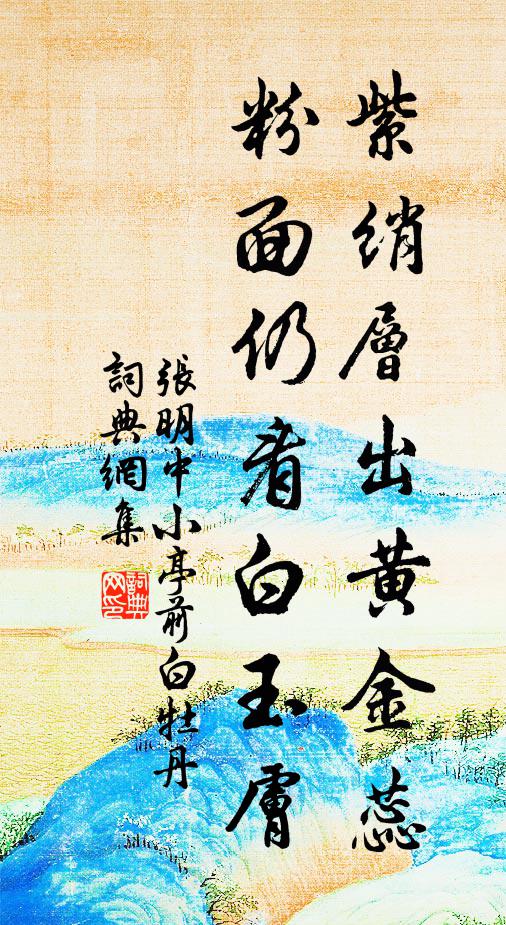 紫綃層出黃金蕊
粉面仍看白玉膚
張明中小亭前白牡丹
詞典網集
詞典网印